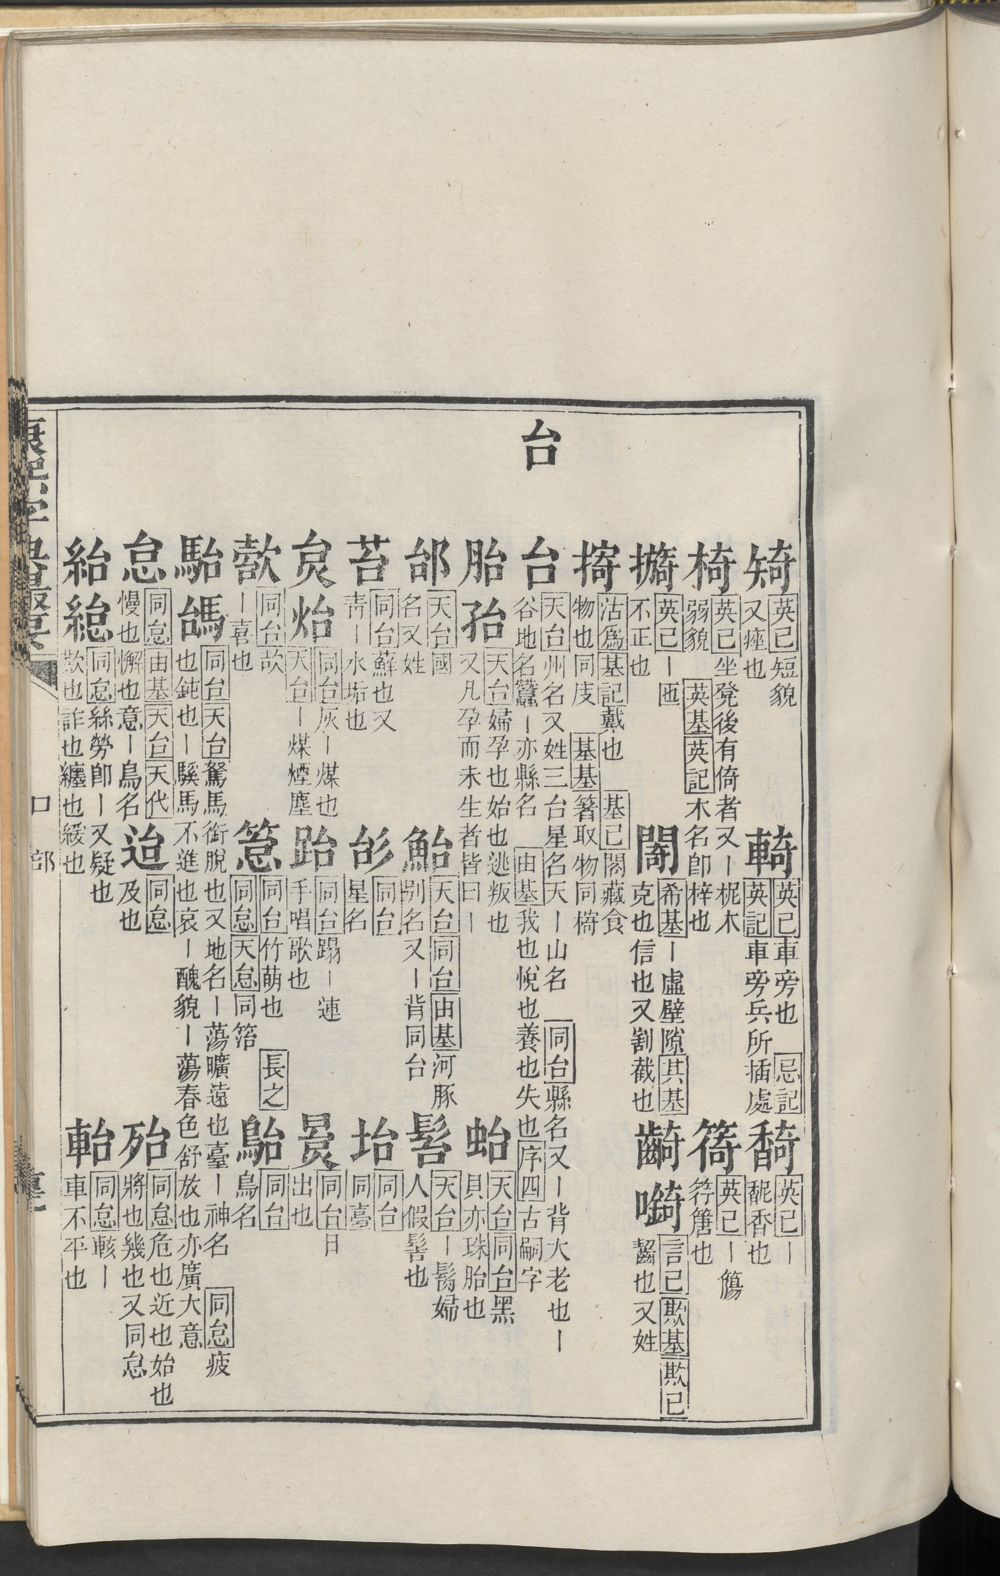 台
䂒 英己短貌又瘂也
輢 英己車旁也 忌記 英記車旁兵所插處
䭲 英己ー馜香也
椅 英己坐凳後有倚者又ー柅木弱貌 英基英記木名卽梓也
䇝 英己ー簜符篖也
英己ー匜不正也
希基ー虛壁隙其基克也信也又割截也
齮 言己欺基欺己齧也又姓
掎 沽爲基記戴也 基己閣藏食物也同庋 基基箸取物同㩻
台 天台州名又姓三台星名天ー山名 同台縣名又ー背大老也ー谷地名蠶ー亦縣名 由基我也悅也養也失也序四古嗣字
胎孡 天台婦孕也始也逃叛也又凡孕而未生者皆曰ー
蛤 天台同台黑貝亦珠胎也
邰 天台國名又姓
鮐 天台同台由基河豚別名又ー背同台
髻 天台ー鬄婦人假髻也
苔 同台蘇也又靑ー水垢也
同台星名
坮 同台同臺
炱炲 同台灰ー煤也天台ー煤煙塵
跆 同台蹋ー連手唱歌也
同台日出也
同台㰧ー喜也
同台竹萌也 長之同怠天怠同箈
鮐 同台鳥名
駘 同台天台駑馬銜脫也又地名ー蕩曠遠也臺ー神名 同怠疲也鈍也ー駿馬不進也哀ー醜貌ー蕩春色舒放也亦廣大意
怠 同怠由基天台天代慢也懈也意ー鳥名
迨 同怠及也
殆 同怠危也近也始也將也幾也又同怠
紿 同怠絲勞卽ー又疑也欺也詐也纏也緩也
軩 同怠輆ー車不平也
口部